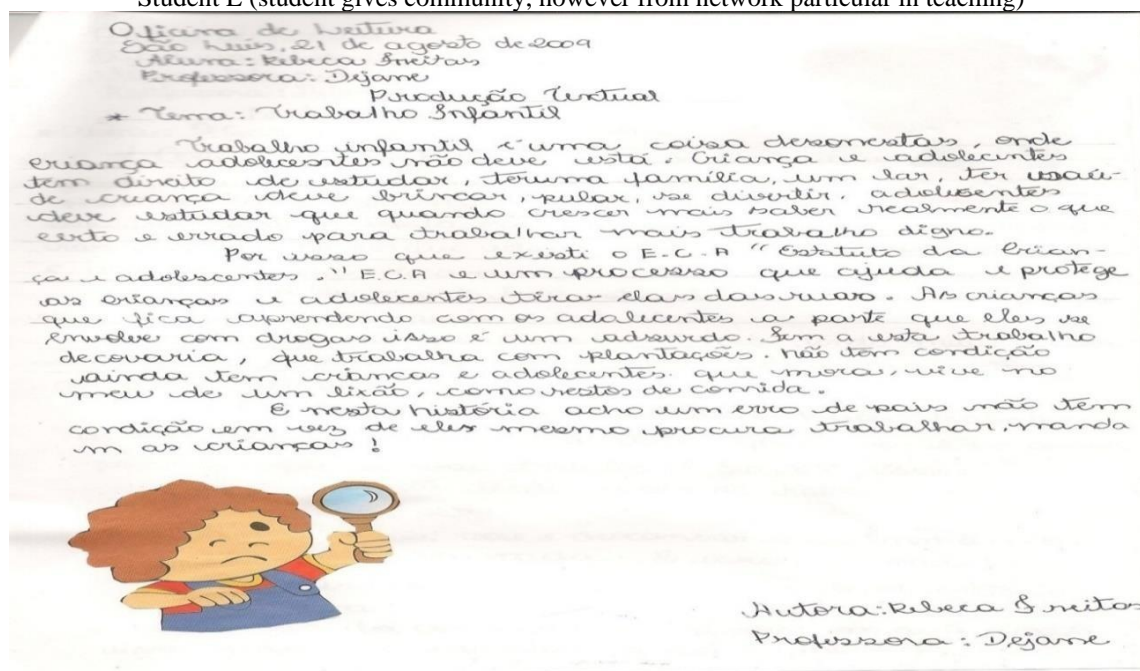 Student E (student gives community, however from network particular in teaching)
Oficina de Leitura
São Luis, 21 de agosto de 2009
Aluna: Rebeca Freitas
Professora: Dejane
Produção Textual
* Tema: Trabalho Infantil
Trabalho infantil é uma coisa desonestas, onde
criança adolecesntes não deve está. Criança e adolecintes
tem direito de estudar, ter uma família, um lar, ter
de criança deve brincar, pular, se divertir. adolesentes
deve estudar que quando crescer mais saber realmente o que
certo e errado para trabalhar mais trabalho digno.
Por isso que existi o E.C.A "Estatuto da Crian-
ça e adolescentes." E.C.A e um processo que ajuda e protege
as crianças e adolecentes tirar elas das ruas. As crianças
que fica aprendendo com os adolecentes a parte que eles se
envolve com drogas isso é um adsurdo. Sem a esta trabalho
decovaria, que trabalha com plantações. não tem condição
ainda tem criancas e adolecentes. que mora, vive no
meu de um lixão, como restos de comida.
E nesta história acho um erro de pais não tem
condição em vez de eles mesmo procura trabalhar, manda
m as crianças!
Autora: Rebeca Freitas
Professora: Dejane